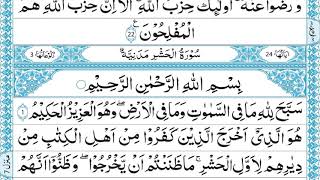 وَ رَضُوۡا عَنۡهُ ؕ اُولٰٓئِكَ حِزۡبُ اللّٰهِ ؕ اَلَاۤ اِنَّ حِزۡبَ اللّٰهِ هُمُ
الۡمُفۡلِحُوۡنَ 22
اٰيَاتُهَا 24 سُوۡرَةُ الۡحَشۡرِ مَدَنِيَّةٌ رُكُوۡعَاتُهَا 3
بِسۡمِ اللّٰهِ الرَّحۡمٰنِ الرَّحِيۡمِ
سَبَّحَ لِلّٰهِ مَا فِى السَّمٰوٰتِ وَمَا فِى الۡاَرۡضِ ۚ وَهُوَ الۡعَزِيۡزُ الۡحَكِيۡمُ 1
هُوَ الَّذِىۡۤ اَخۡرَجَ الَّذِيۡنَ كَفَرُوۡا مِنۡ اَهۡلِ الۡكِتٰبِ مِنۡ
دِيَارِهِمۡ لِاَوَّلِ الۡحَشۡرِ ؔ مَا ظَنَنۡتُمۡ اَنۡ يَّخۡرُجُوۡا وَظَنُّوۡۤا اَنَّهُمۡ